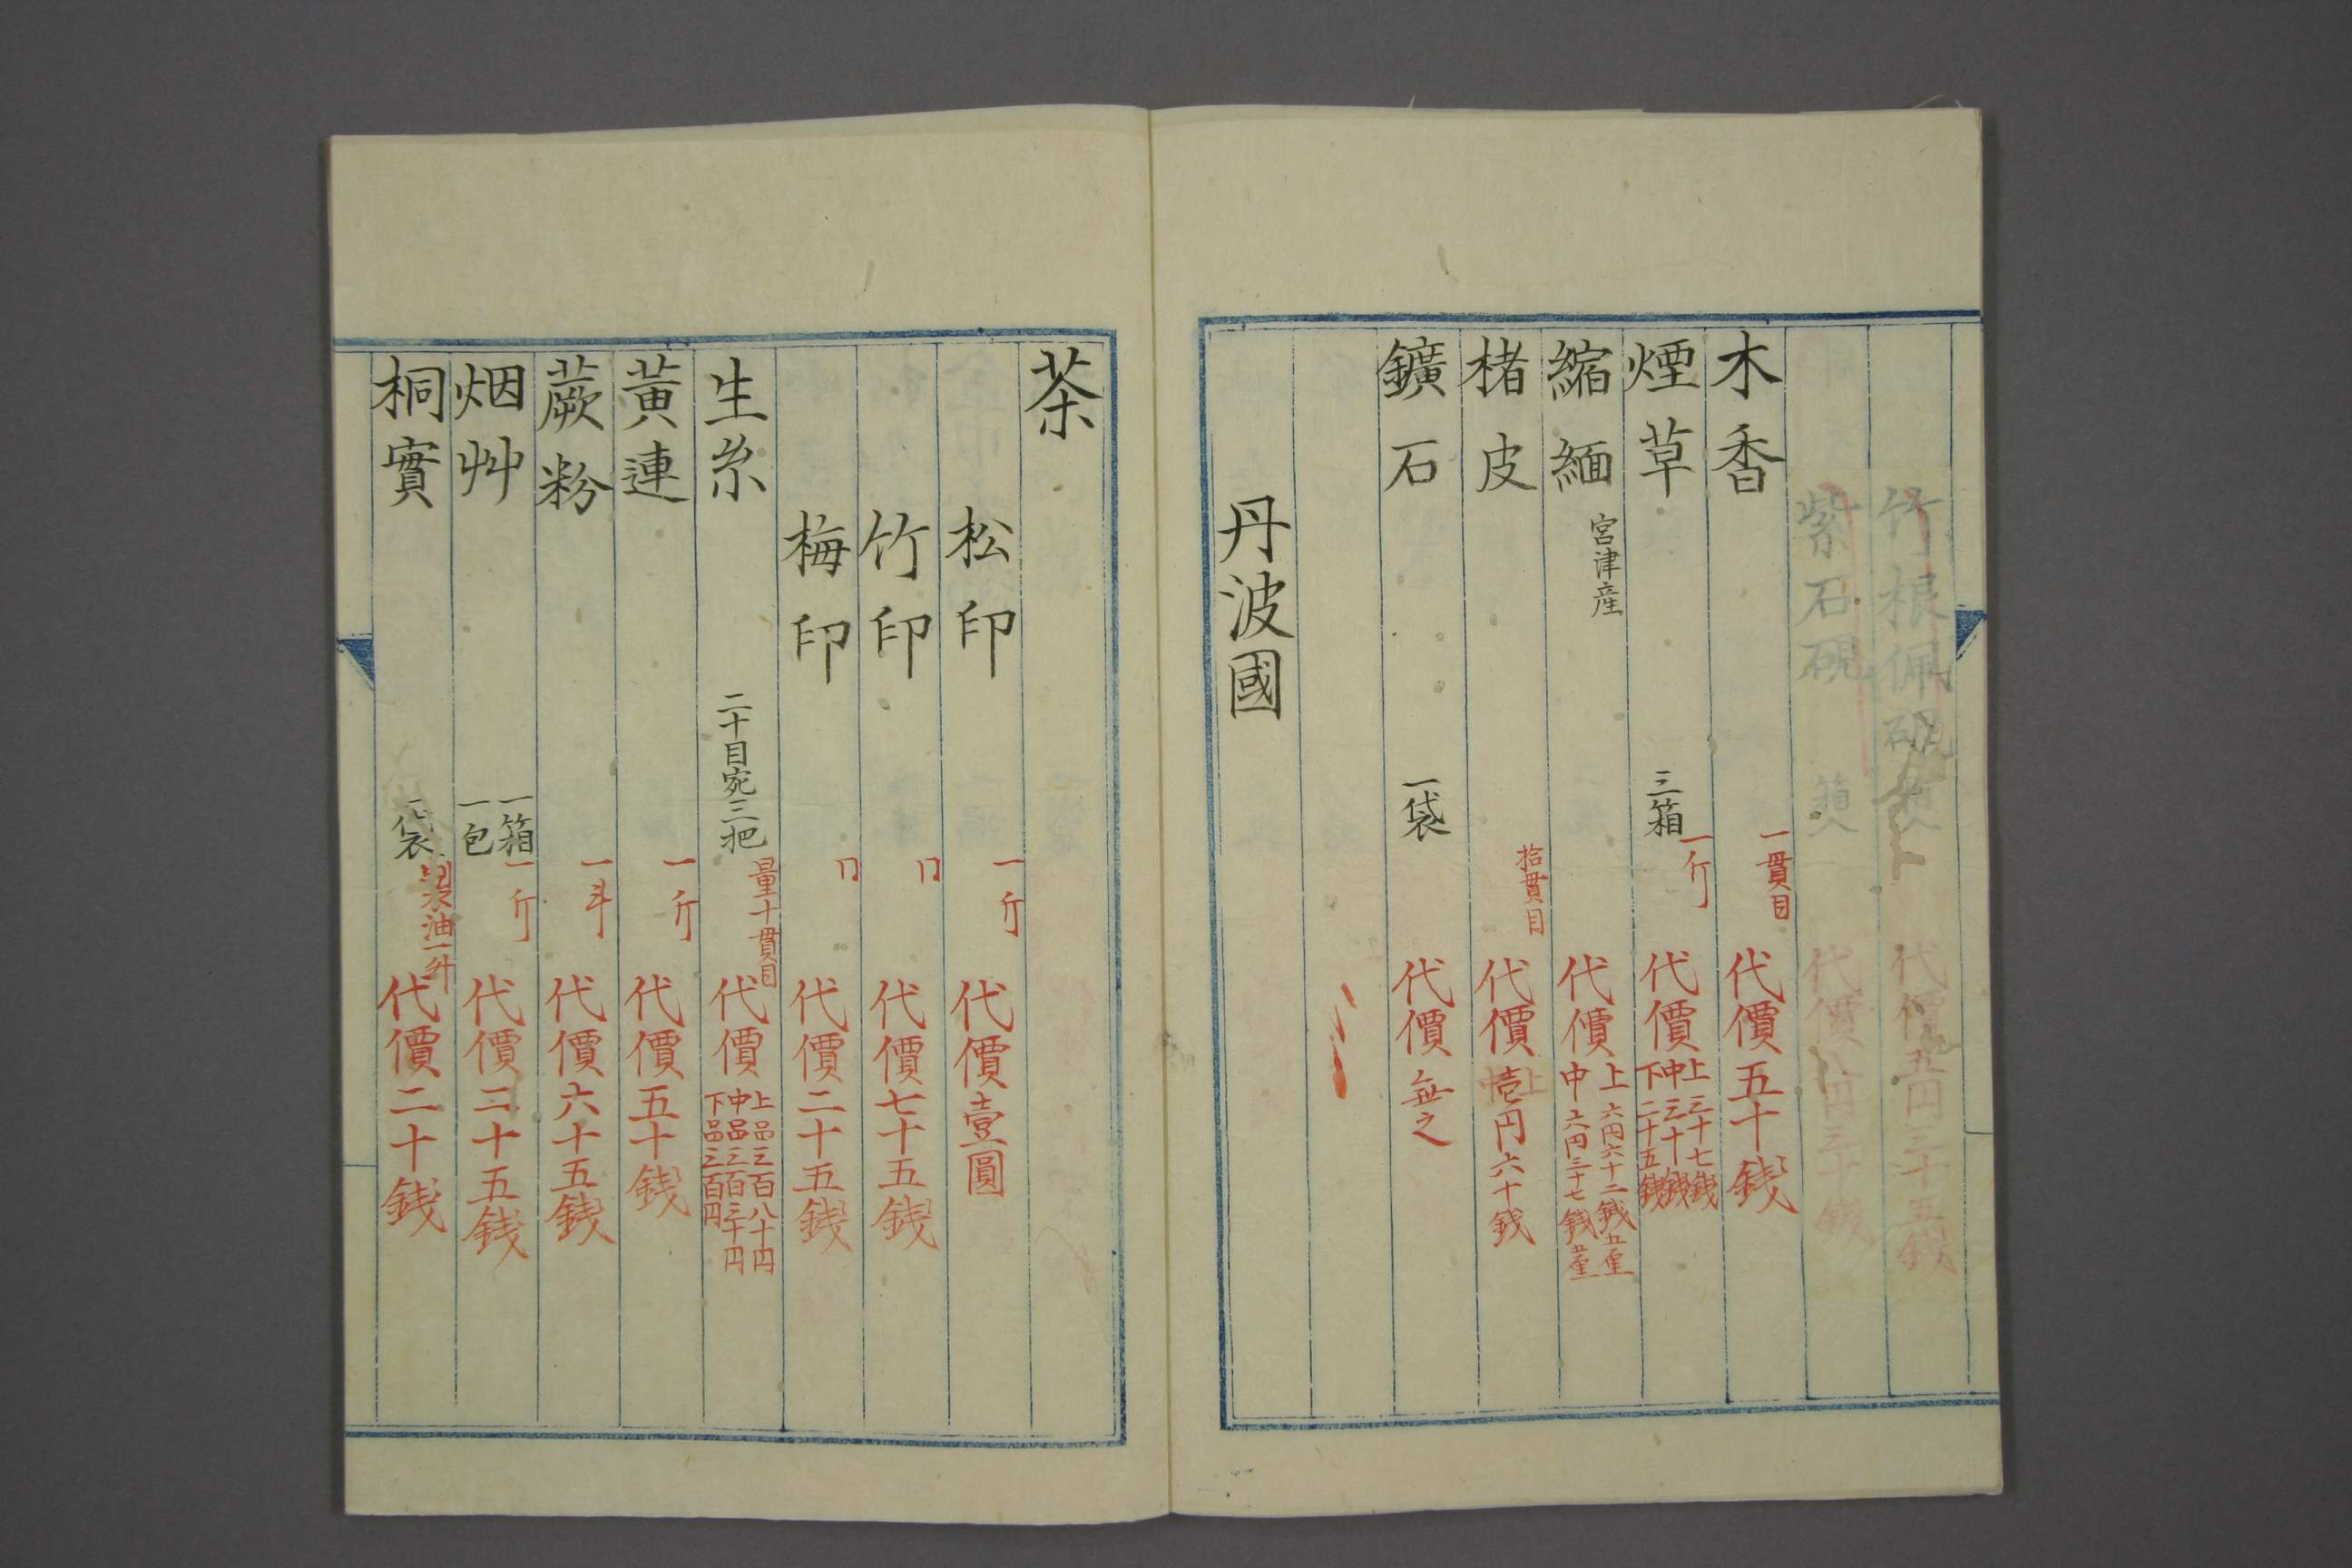 竹根佩硯 代價五円三十五銭
紫石硯 代價 円三十銭
木香 一貫目 代價五十銭
煙草 三箱 一斤 代價 上三十七銭 中三十銭 下二十五銭
縮緬 宮津産 代價 上六円六十二銭五厘 中六円三十七銭五厘
楮皮 拾貫目 代價壱円六十銭
鑛石 一袋 代價無之
丹波國
茶
松印 一斤 代價壹圓
竹印 〃 代價七十五銭
梅印 〃 代價二十五銭
生糸 二十目宛三把 量十貫目 代價 上品三百八十円 中品三百三十円 下品三百円
黄連 一斤 代價五十銭
蕨粉 一斗 代價六十五銭
烟艸 一箱 一包 一斤 代價三十五銭
桐實 一袋 製油一升 代價二十銭